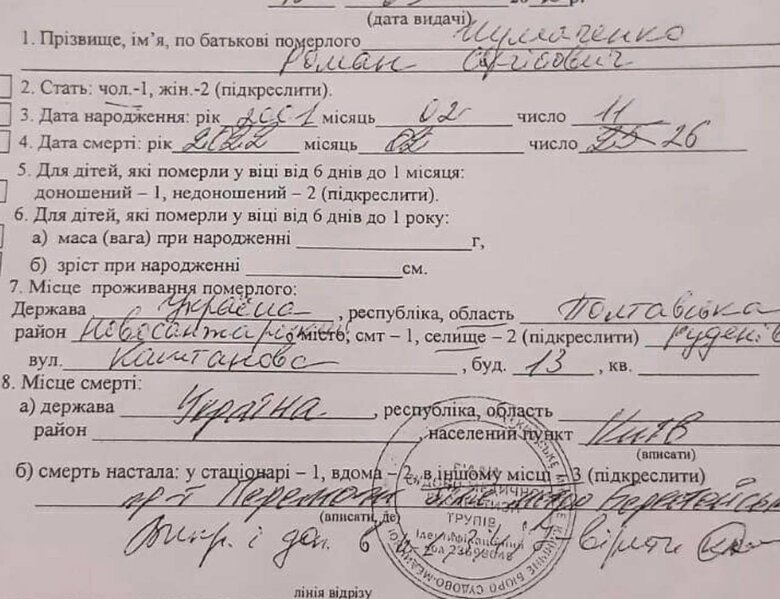 (дата видачі)
1. Прізвище, ім'я, по батькові померлого Шумаченко
Роман Сергійович
2. Стать: чол.-1, жін.-2 (підкреслити).
3. Дата народження: рік 2001 місяць 02 число 11
4. Дата смерті: рік 2022 місяць 02 число 25 26
5. Для дітей, які померли у віці від 6 днів до 1 місяця:
доношений – 1, недоношений – 2 (підкреслити).
6. Для дітей, які померли у віці від 6 днів до 1 року:
а) маса (вага) при народженні г,
б) зріст при народженні см.
7. Місце проживання померлого:
Держава Україна , республіка, область Полтавська
район Новосанжарський місто, смт – 1, селище – 2 (підкреслити) Руденів
вул. Каштанова , буд. 13 , кв.
8. Місце смерті:
а) держава Україна , республіка, область
район , населений пункт Київ
(вписати)
б) смерть настала: у стаціонарі – 1, вдома – 2, в іншому місці – 3 (підкреслити)
пр-т Перемоги біля метро Берестейськ
(вписати, де)
Випр. і доп. вірити
ТРУПІВ
Ідентифікаційний
лінія відрізу